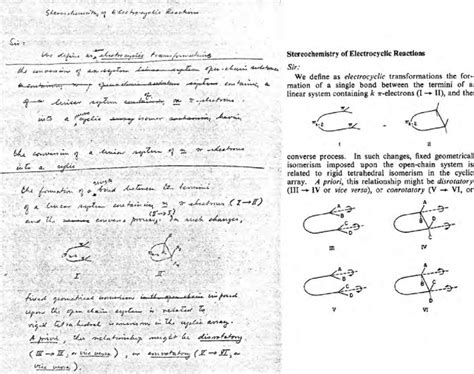 Stereochemistry of Electrocyclic Reactions
Sir:
We define as electrocyclic transformations
the conversion of an open-chain
containing a
linear system containing π-electrons.
into a cyclic isomer having
the conversion of a linear system of π electrons
into a cyclic
the formation of a single bond between the termini
of a linear system containing π electrons (I→II)
and the converse process. In such changes,
I
II
fixed geometrical isomerism imposed
upon the open-chain system is related to
rigid tetrahedral isomerism in the cyclic array.
A priori, this relationship might be disrotatory
(III → IV, or vice versa), or conrotatory (V → VI, or
vice versa).
Stereochemistry of Electrocyclic Reactions
Sir:
We define as electrocyclic transformations the for-
mation of a single bond between the termini of a
linear system containing k π-electrons (I → II), and the
I
II
converse process. In such changes, fixed geometrical
isomerism imposed upon the open-chain system is
related to rigid tetrahedral isomerism in the cyclic
array. A priori, this relationship might be disrotatory
(III → IV or vice versa), or conrotatory (V → VI, or
A
B
C
D
A
B
C
D
III
IV
A
B
C
D
A
B
C
D
V
VI